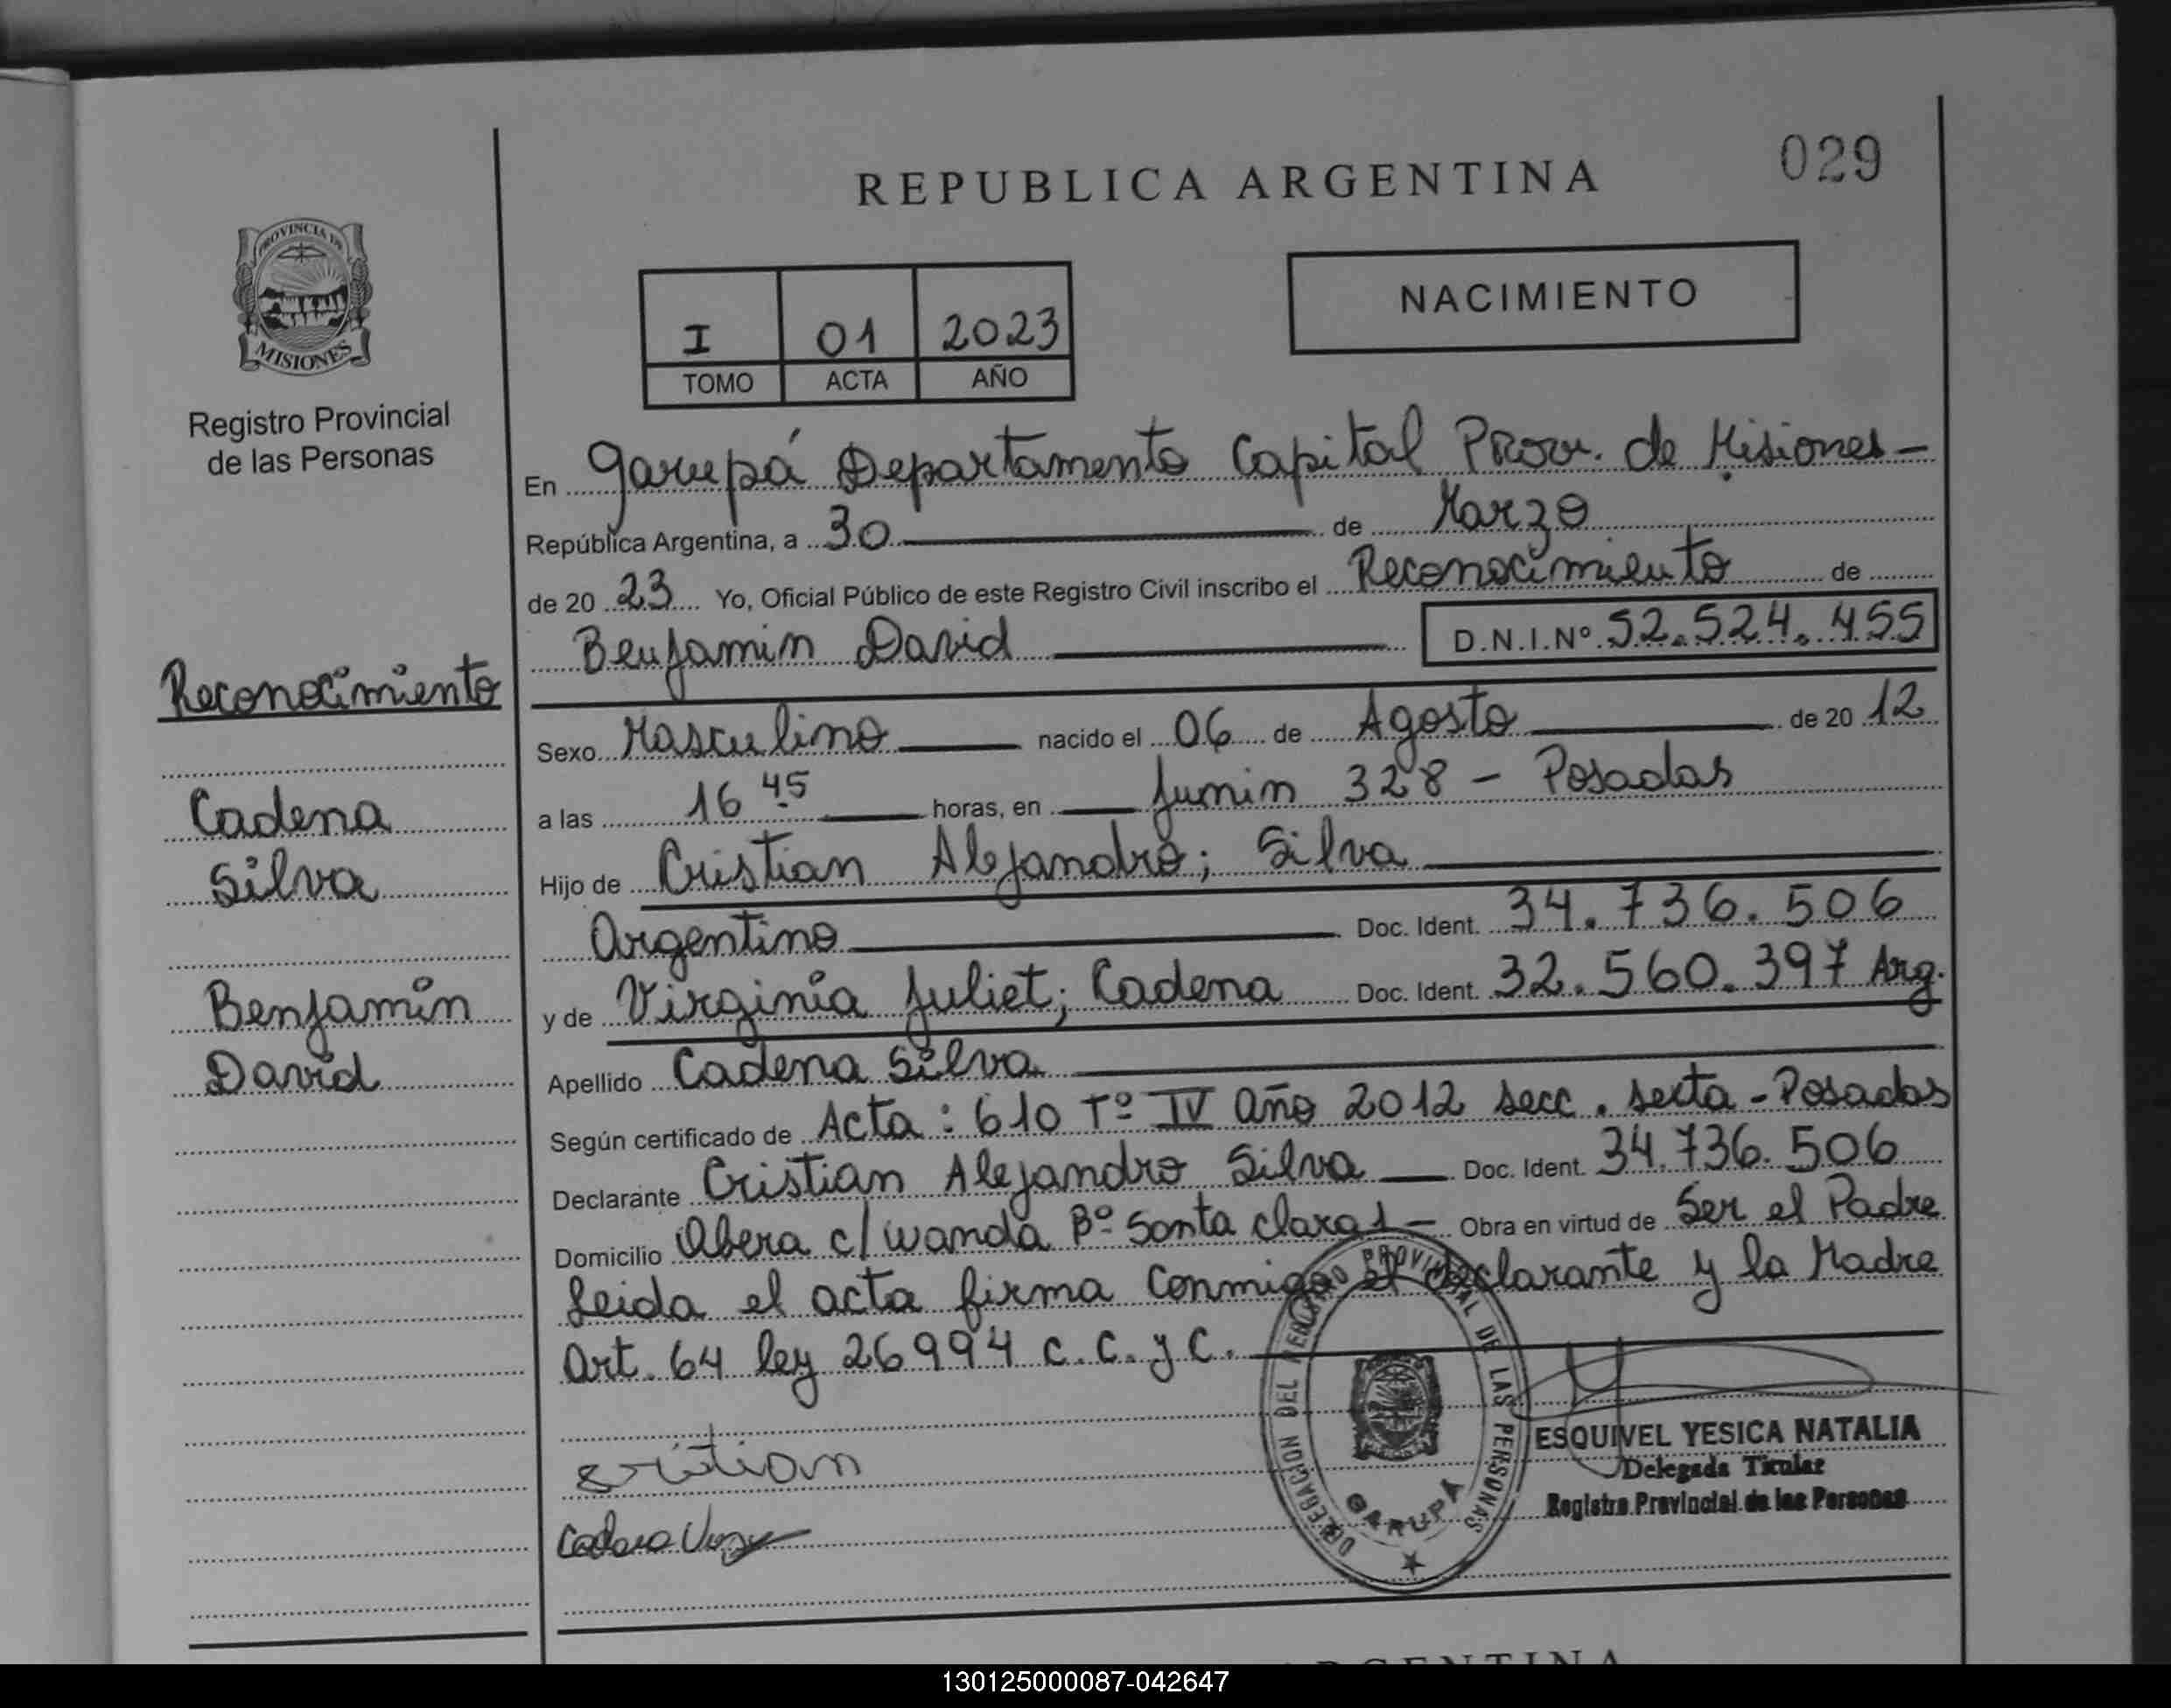 029
REPUBLICA ARGENTINA
PROVINCIA DE
MISIONES
Registro Provincial
de las Personas
NACIMIENTO
I 01 2023
TOMO ACTA AÑO
En Garupá Departamento Capital Prov. de Misiones -
República Argentina, a 30 de Marzo
de 20 23 Yo, Oficial Público de este Registro Civil inscribo el Reconocimiento de
Benjamin David D.N.I.Nº 52.524.455
Reconocimiento
Cadena
Silva
Benjamín
David
Sexo Masculino nacido el 06 de Agosto de 20 12
a las 16 45 horas, en Junin 328 - Posadas
Hijo de Cristian Alejandro; Silva
Argentino Doc. Ident. 34.736.506
y de Virginia Juliet; Cadena Doc. Ident. 32.560.397 Arg.
Apellido Cadena Silva
Según certificado de Acta: 610 Tº IV Año 2012 secc. sexta - Posadas
Declarante Cristian Alejandro Silva Doc. Ident. 34.736.506
Domicilio Obera c/ wanda Bº Santa Clara 1 - Obra en virtud de Ser el Padre
Leida el acta firma conmigo el declarante y la Madre
Art. 64 ley 26994 c.c. y c.
DELEGACION DEL REGISTRO PROVINCIAL DE LAS PERSONAS
GARUPA
ESQUIVEL YESICA NATALIA
Delegada Titular
Registro Provincial de las Personas
cristian
Cadena
ARGENTINA
130125000087-042647